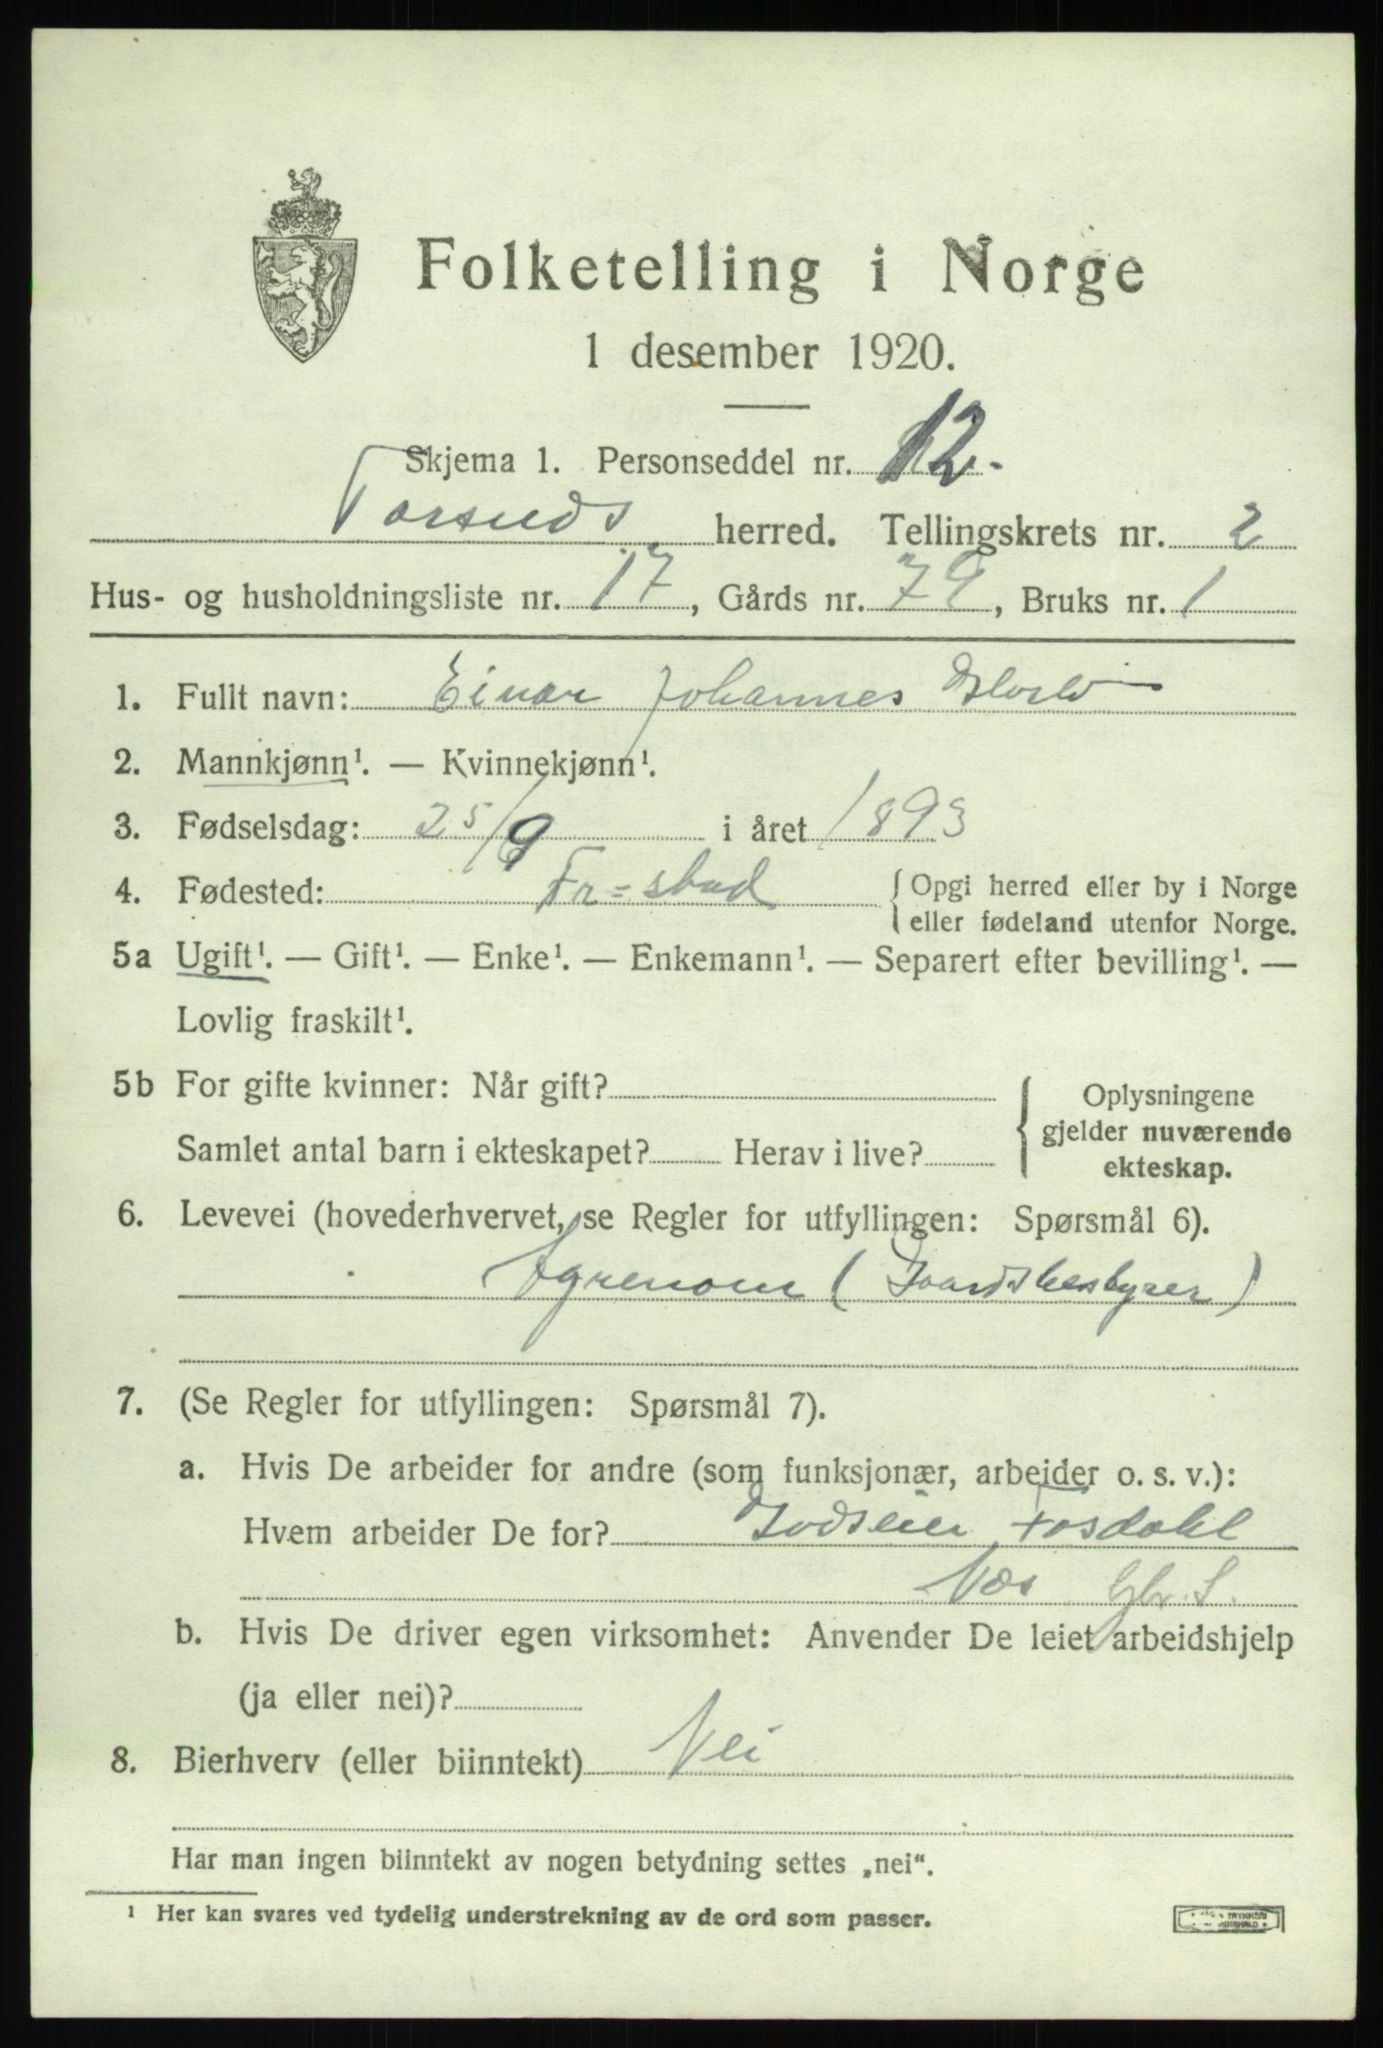 Folketelling i Norge
1 desember 1920.
Skjema 1. Personseddel nr. 12.
Torsnes herred. Tellingskrets nr. 2
Hus- og husholdningsliste nr. 17, Gårds nr. 79, Bruks nr. 1
1. Fullt navn: Einar Johannes
2. Mannkjønn¹. — Kvinnekjønn¹.
3. Fødselsdag: 25/9 i året 1893
4. Fødested: Fr=stad { Opgi herred eller by i Norge
eller fødeland utenfor Norge.
5a Ugift¹. — Gift¹. — Enke¹. — Enkemann¹. — Separert efter bevilling¹. —
Lovlig fraskilt¹.
5b For gifte kvinner: Når gift?
Samlet antal barn i ekteskapet? Herav i live?
{ Oplysningene
gjelder nuværende
ekteskap.
6. Levevei (hovederhvervet, se Regler for utfyllingen: Spørsmål 6).
Agronom (Gaardsbestyrer)
7. (Se Regler for utfyllingen: Spørsmål 7).
a. Hvis De arbeider for andre (som funksjonær, arbeider o. s. v.):
Hvem arbeider De for? Godseier Fosdahl
Næs Gbr. S.
b. Hvis De driver egen virksomhet: Anvender De leiet arbeidshjelp
(ja eller nei)?
8. Bierhverv (eller biinntekt) Nei
Har man ingen biinntekt av nogen betydning settes „nei“.
¹ Her kan svares ved tydelig understrekning av de ord som passer.